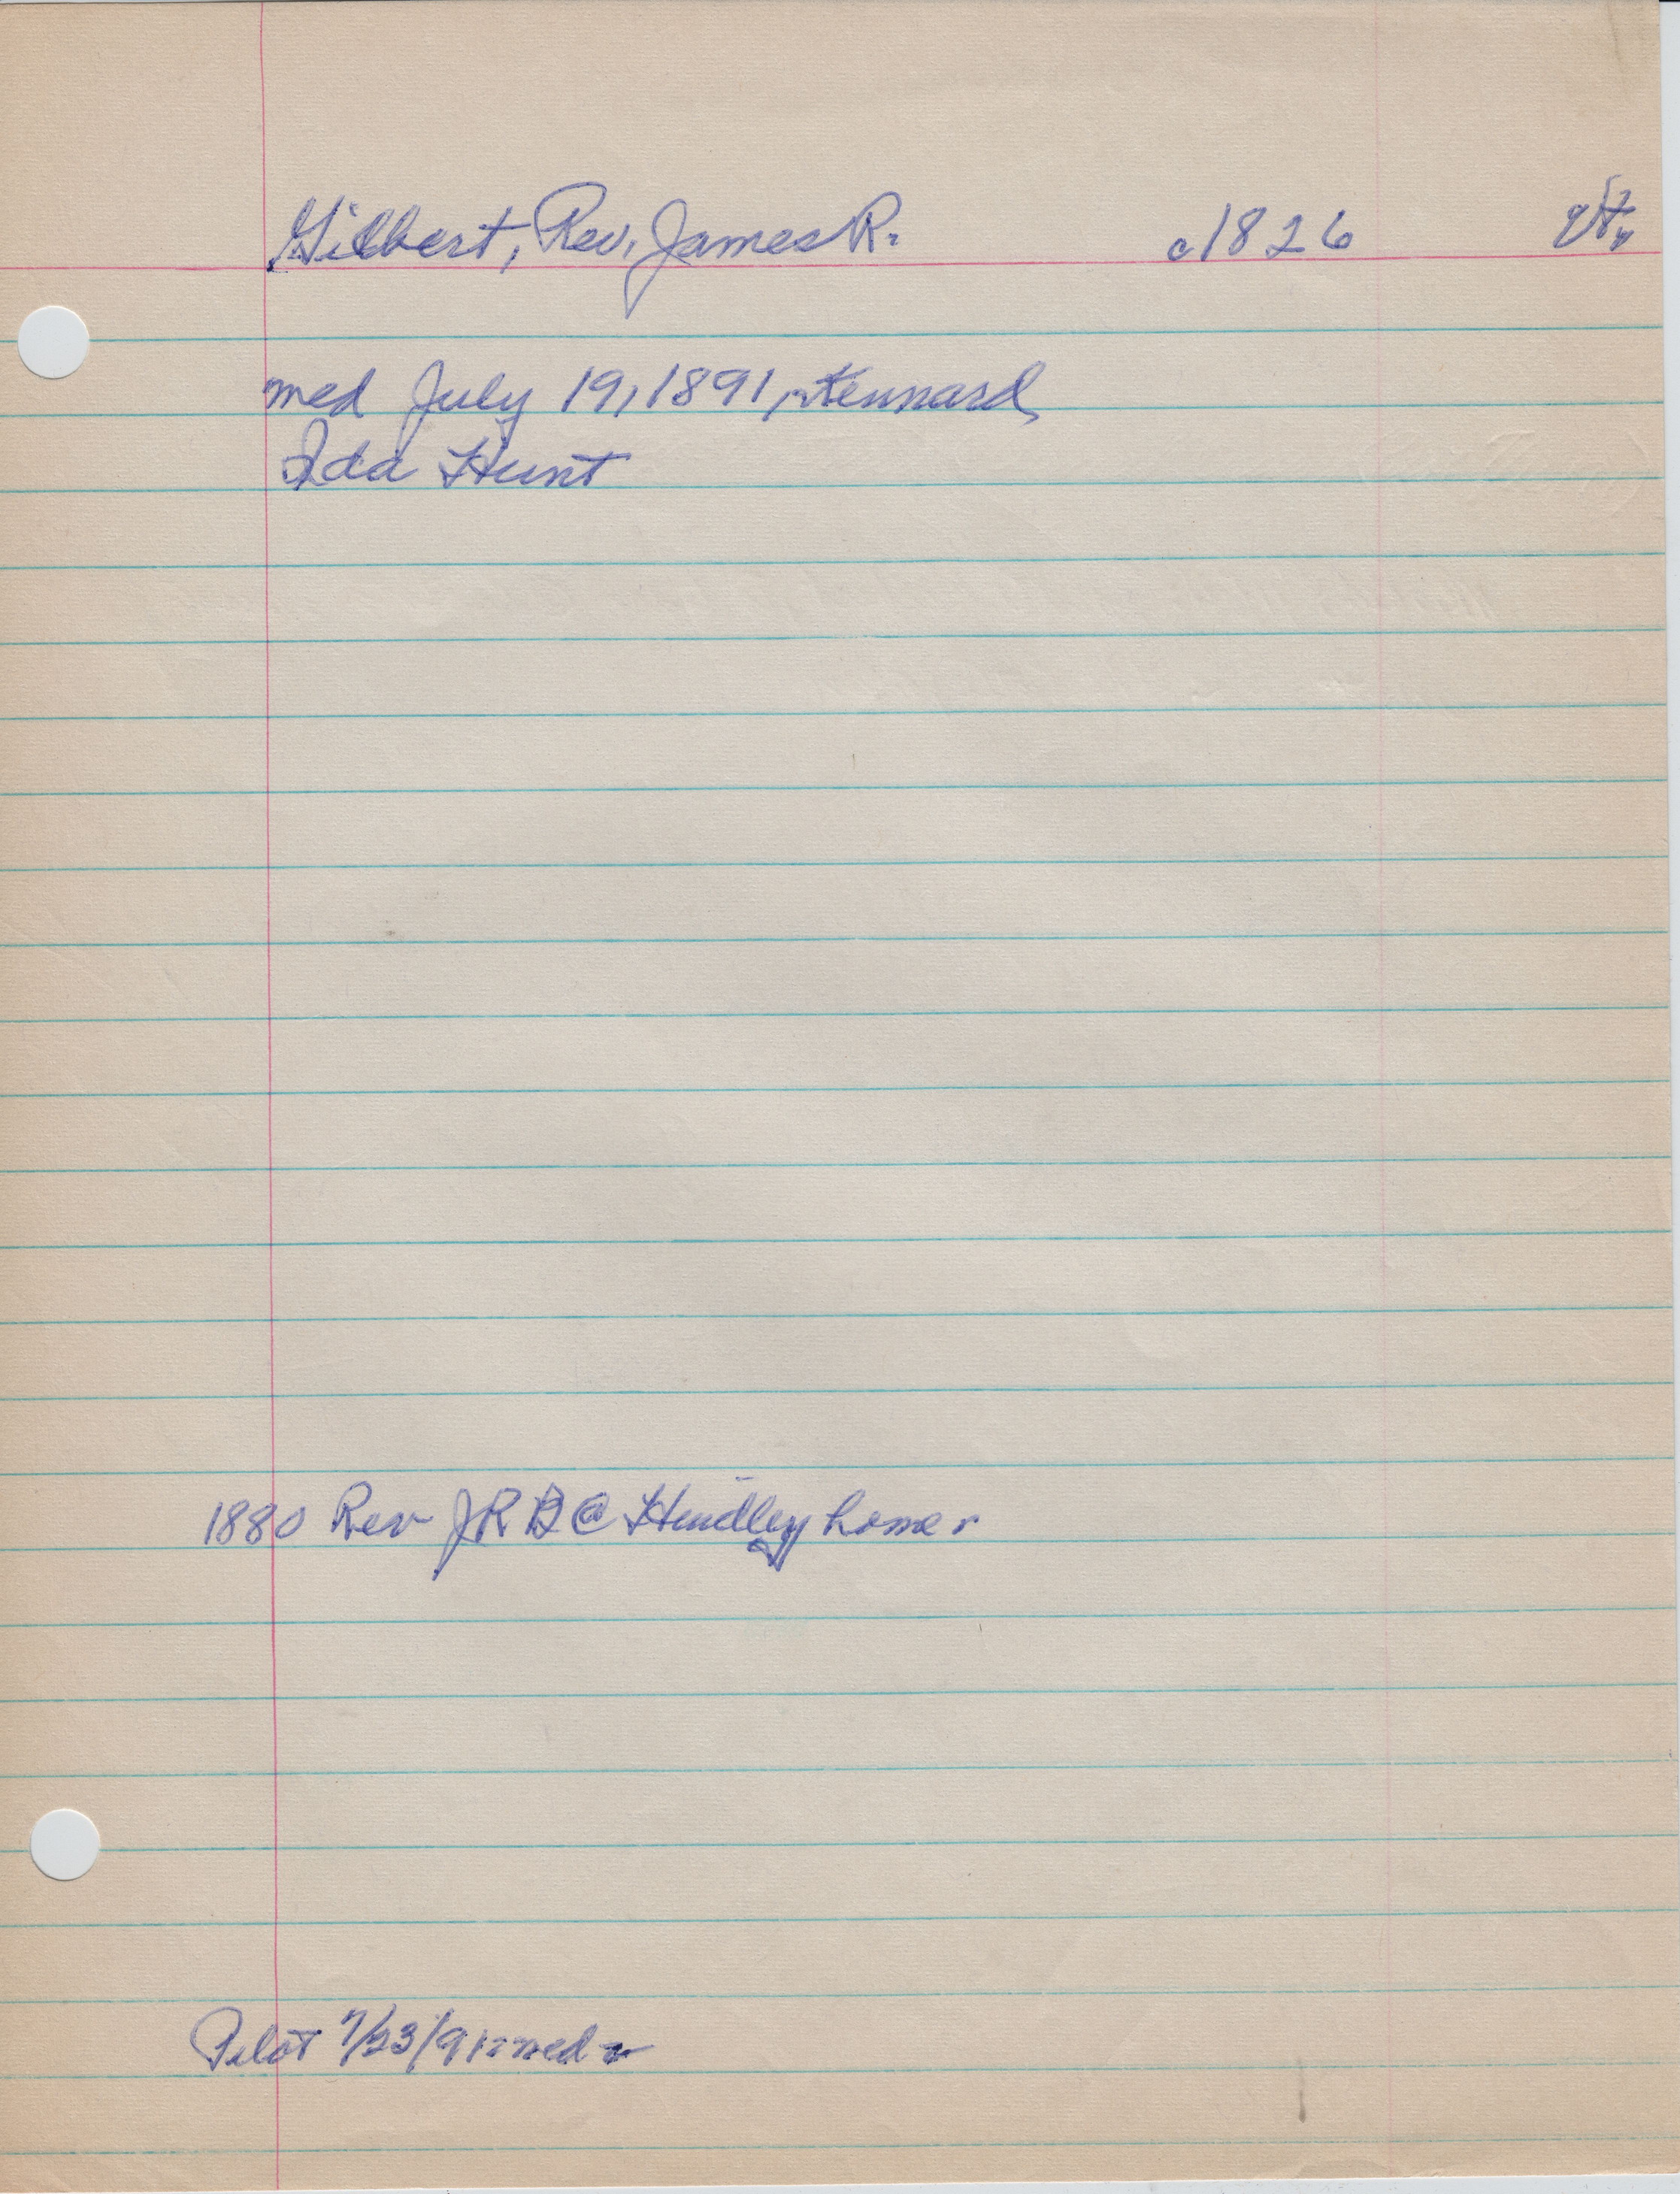 Gilbert, Rev. James R. c1826 Vt.
med July 19, 1891, Kennard,
Ida Hunt
1880 Rev JR @ Hindley home
Pilot 7/23/91: med